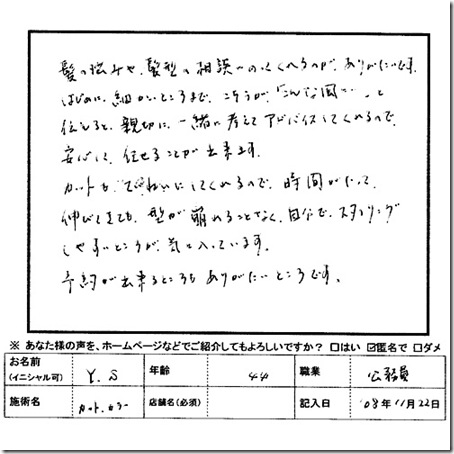 髪の悩みや、髪型の相談にのってくれるのが、ありがたいです。
はじめに、細かいところまで、こちらが「こんな風に…」と
伝えると、親切に、一緒に考えてアドバイスしてくれるので、
安心して、任せることが出来ます。
カットも、ていねいにしてくれるので、時間がたって、
伸びてきても、型が崩れることなく、自分で、スタイリング
しやすいところが、気に入っています。
予約が出来るところも ありがたいところです。
※ あなた様の声を、ホームページなどでご紹介してもよろしいですか? □はい ☑匿名で □ダメ
お名前 (イニシャル可) Y.S 年齢 44 職業 公務員
施術名 カット、カラー 店舗名(必須) 記入日 '08年11月22日